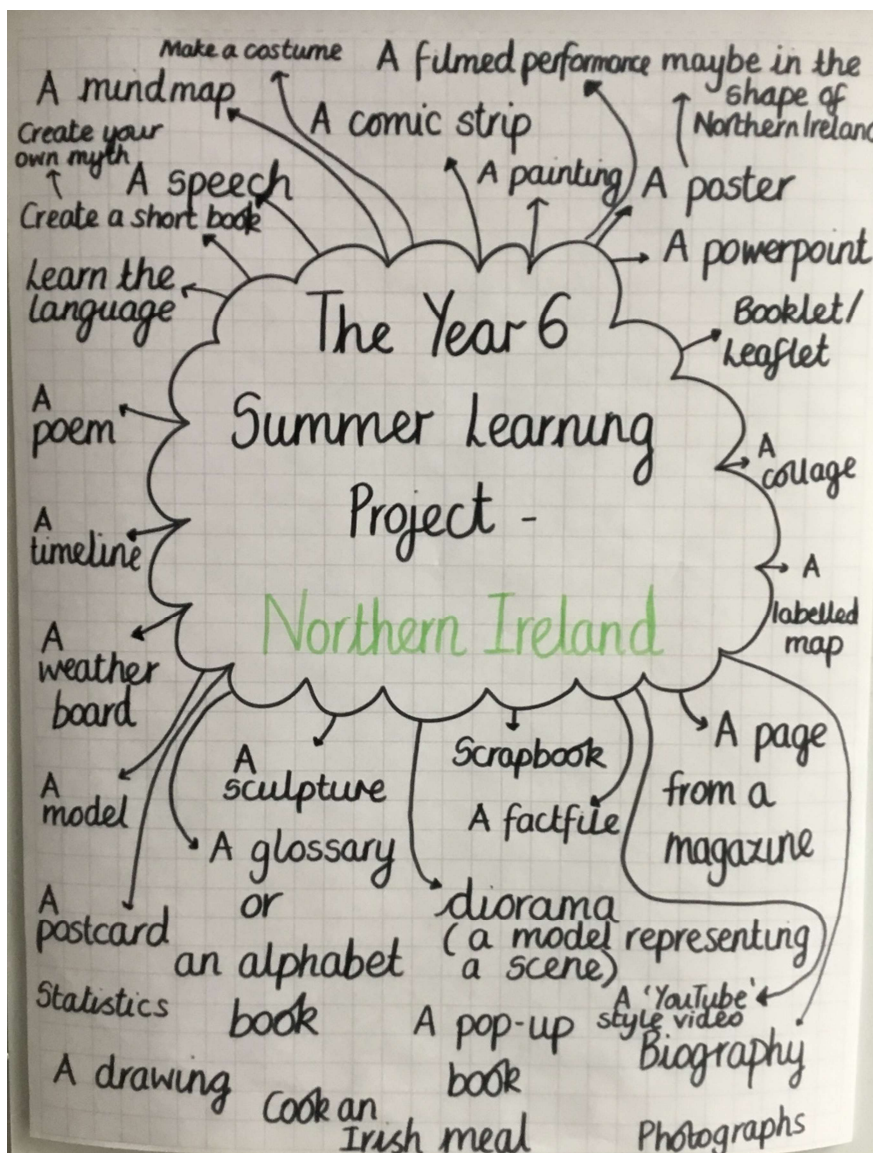 Make a costume
A filmed performance
maybe in the
shape of
Northern Ireland
A mindmap
A comic strip
Create your
own myth
A speech
A painting
A poster
Create a short book
A powerpoint
Learn the
language
The Year 6
Summer Learning
Project -
Northern Ireland
Booklet/
Leaflet
A
poem
A
collage
A
timeline
A
labelled
map
A
weather
board
A
sculpture
Scrapbook
A page
from a
magazine
A
model
A factfile
A glossary
or
an alphabet
book
A
postcard
diorama
(a model representing
a scene)
Statistics
A 'YouTube'
style video
A pop-up
book
Biography
A drawing
Cook an
Irish meal
Photographs